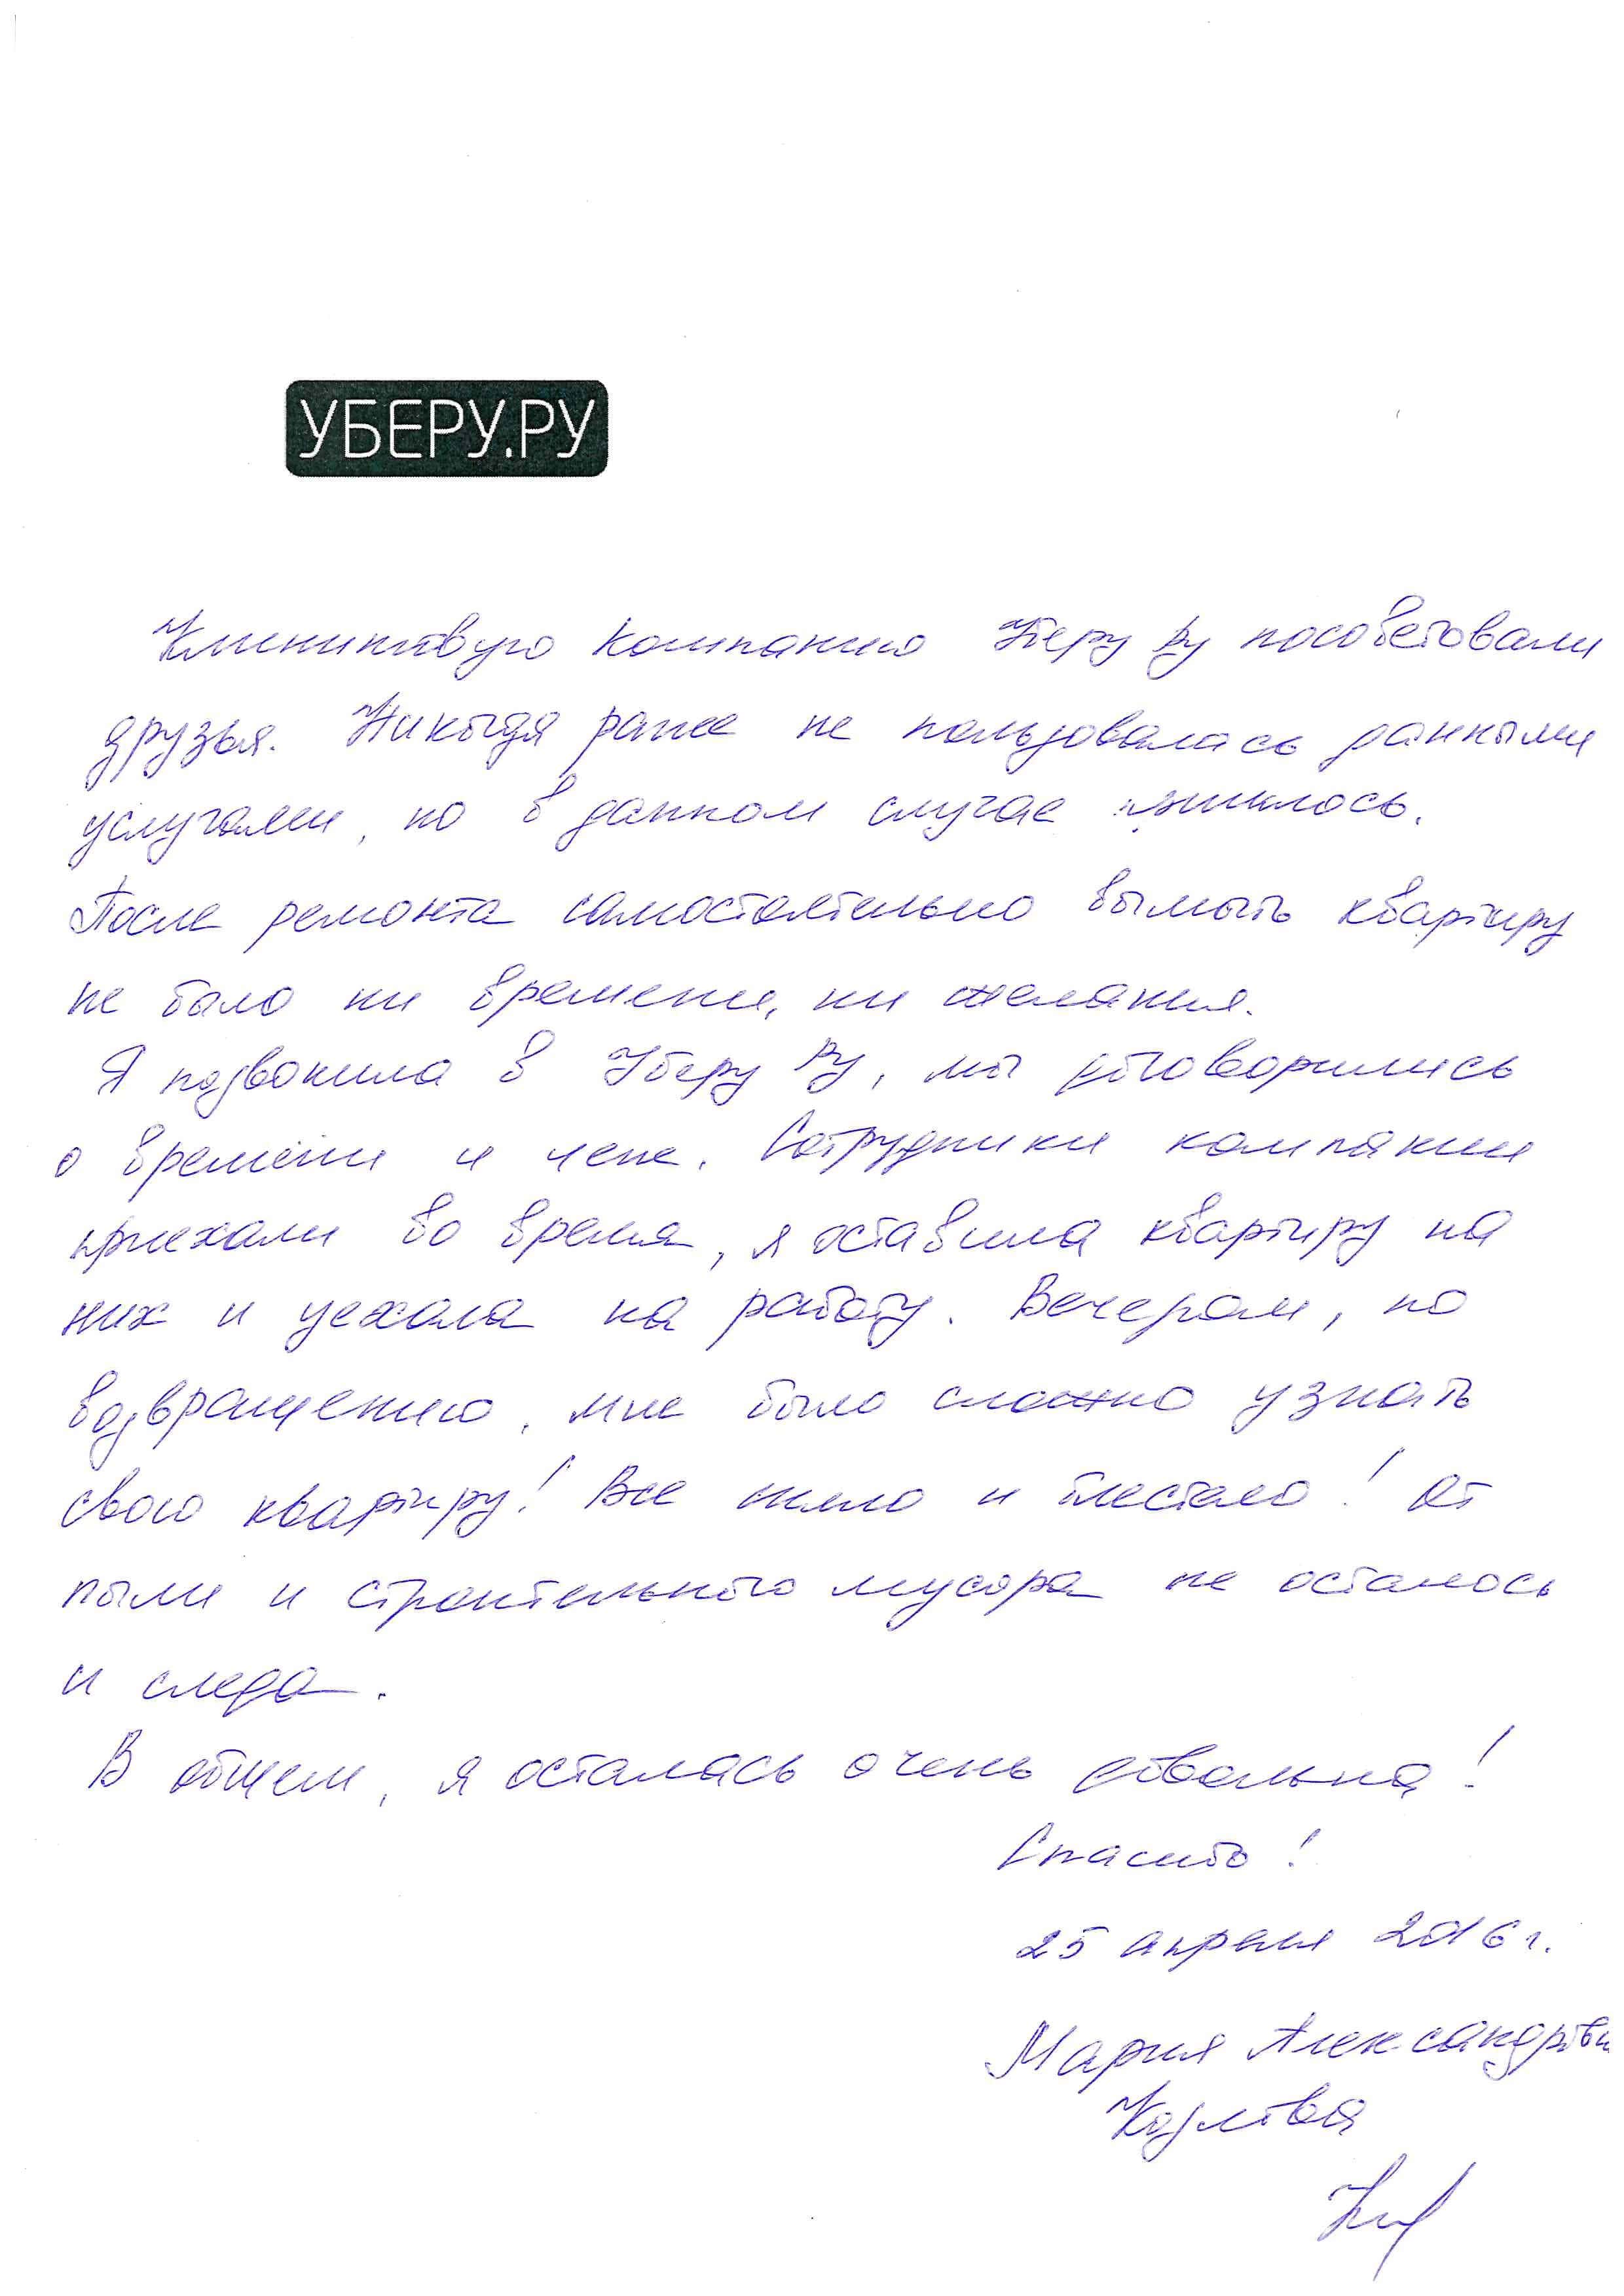 УБЕРУ.РУ
Клининговую компанию Уберу Ру посоветовали
друзья. Никогда ранее не пользовалась данными
услугами, но в данном случае пришлось.
После ремонта самостоятельно вымыть квартиру
не было ни времени, ни желания.
Я позвонила в Уберу Ру, мы договорились
о времени и цене. Сотрудники компании
приехали во время, я оставила квартиру на
них и уехала на работу. Вечером, по
возвращению, мне было сложно узнать
свою квартиру! Все сияло и блестело! От
пыли и строительного мусора не осталось
и следа.
В общем, я осталась очень довольна!
Спасибо!
25 апреля 2016 г.
Мария Александровн
Козлова